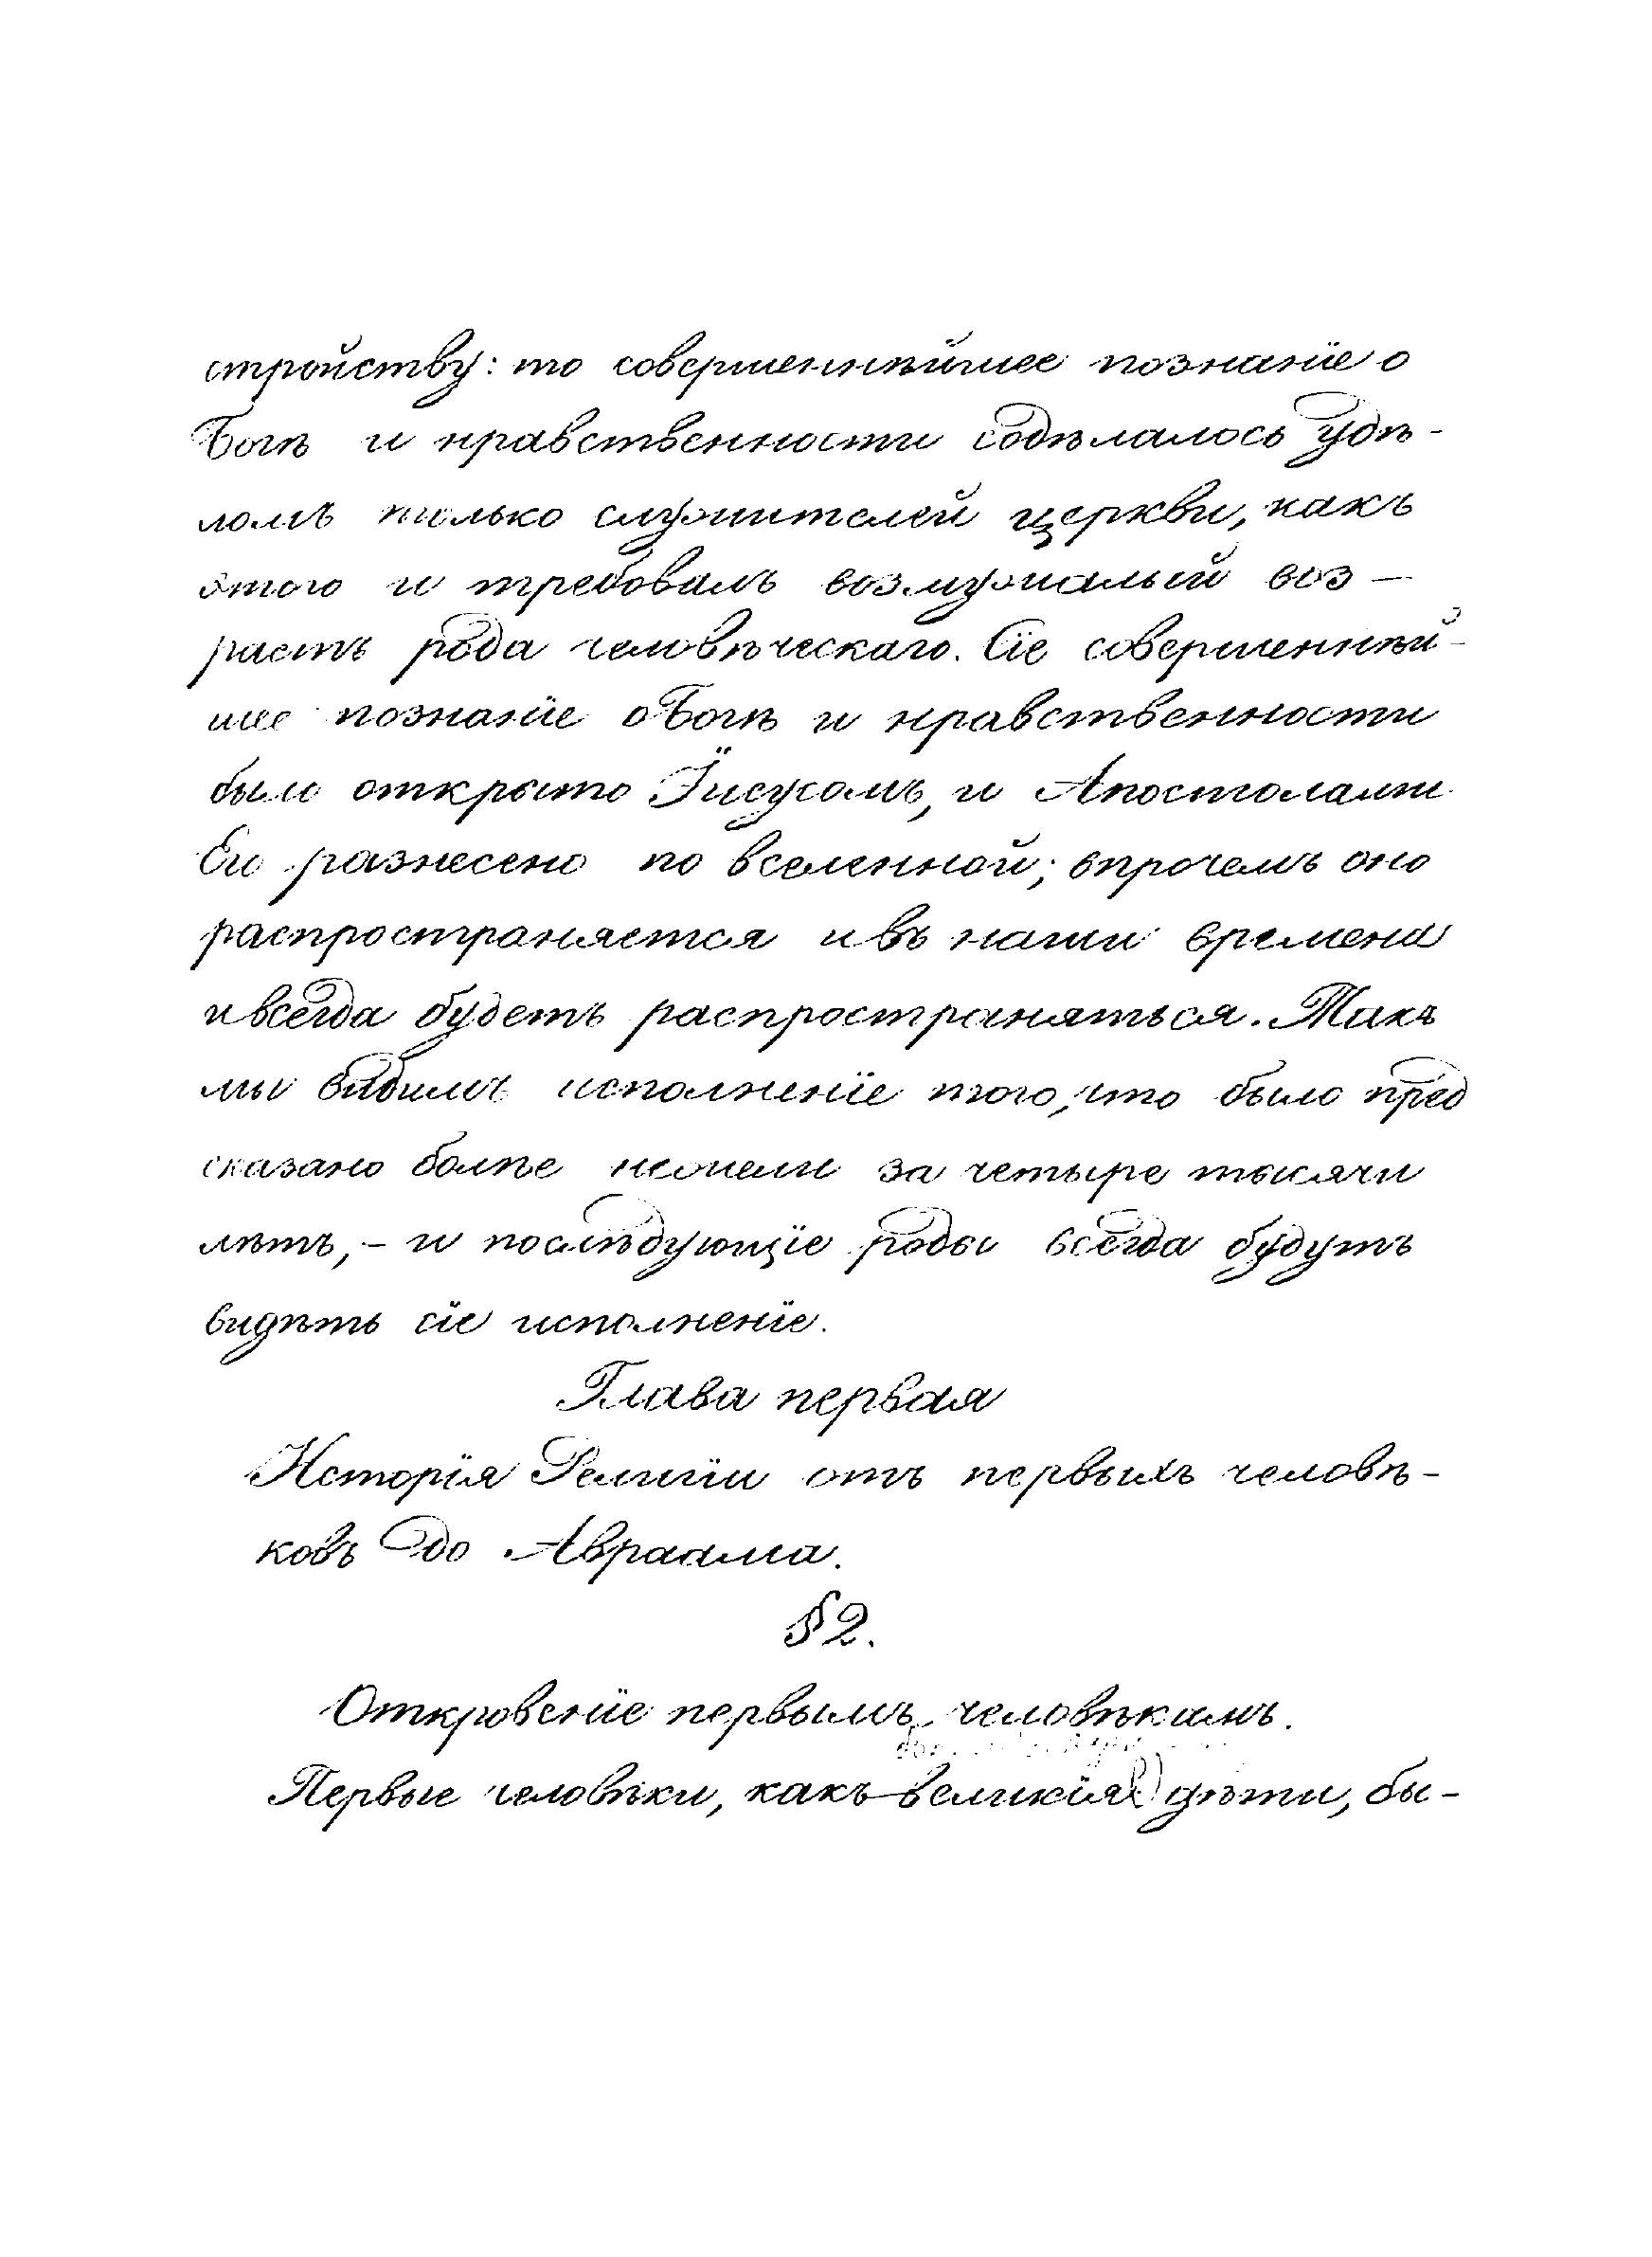 стройству: то совершеннѣйшее познанїе о
Богѣ и нравственности содѣлалось удѣ-
ломъ только служителей церкви, какъ
этого и требовалъ возмужалый воз-
растъ рода человѣческаго. Сїе совершеннѣй-
шее познанїе о Богѣ и нравственности
было открыто Їисусомъ, и Апостолами
Его разнесено по вселенной; впрочемъ оно
распространяется и въ наши времена
и всегда будетъ распространяться. Такъ
мы видимъ исполненїе того, что было пред
сказано болѣе нежели за четыре тысячи
лѣтъ, - и послѣдующїе роды всегда будутъ
видѣть сїе исполненїе.
Глава первая
Исторїя Религїи отъ первыхъ человѣ-
ковъ до Авраама.
§ 2.
Откровенїе первымъ человѣкамъ.
Первые человѣки, какъ великїя дѣти, бы-